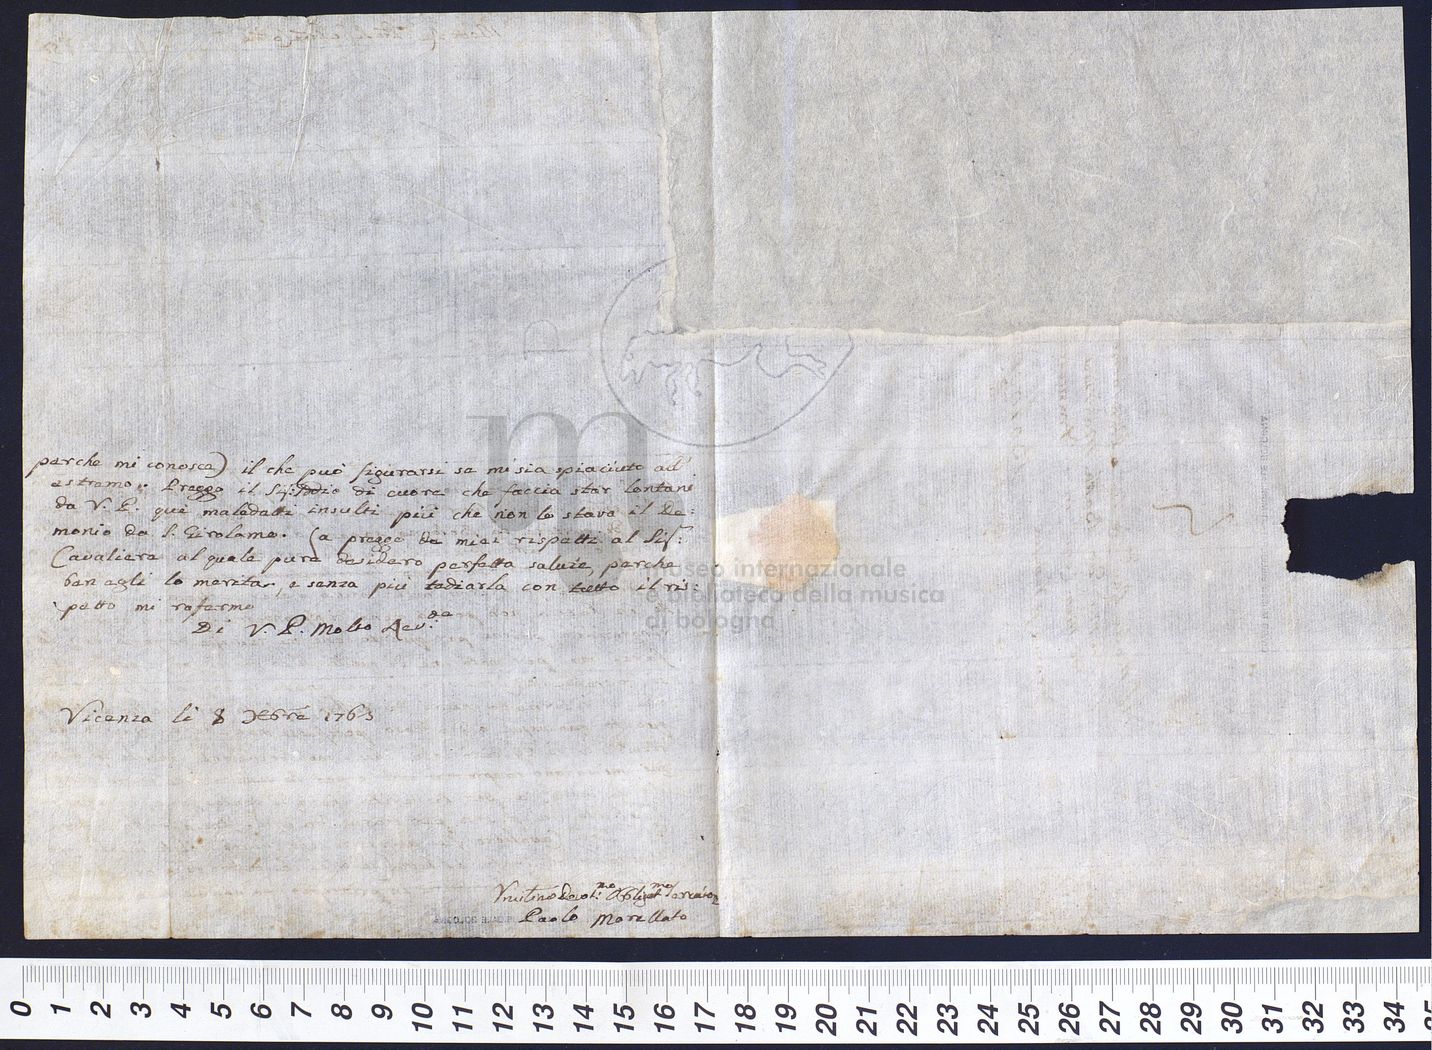 perche mi conosce) il che può figurarsi se mi sia spiaciuto all'
estremo. Prego il Sig: Iddio di cuore che faccia star lontani
da V. P. que' maledetti insulti più che non lo stava il De:
monio da S. Girolamo. La prego de' miei rispetti al Sig:
Cavaliere al quale pure desidero perfetta salute, perche
ben egli lo merita, e senza più tediarla con tutto il ris:
petto mi rafermo
Di V. P. Molto Rev:da
Vicenza li 8 Xbre 1763
Umilmo Devot:mo Obligat:mo Servidor
Paolo Morellato
museo internazionale
e biblioteca della musica
di bologna
0 1 2 3 4 5 6 7 8 9 10 11 12 13 14 15 16 17 18 19 20 21 22 23 24 25 26 27 28 29 30 31 32 33 34 35